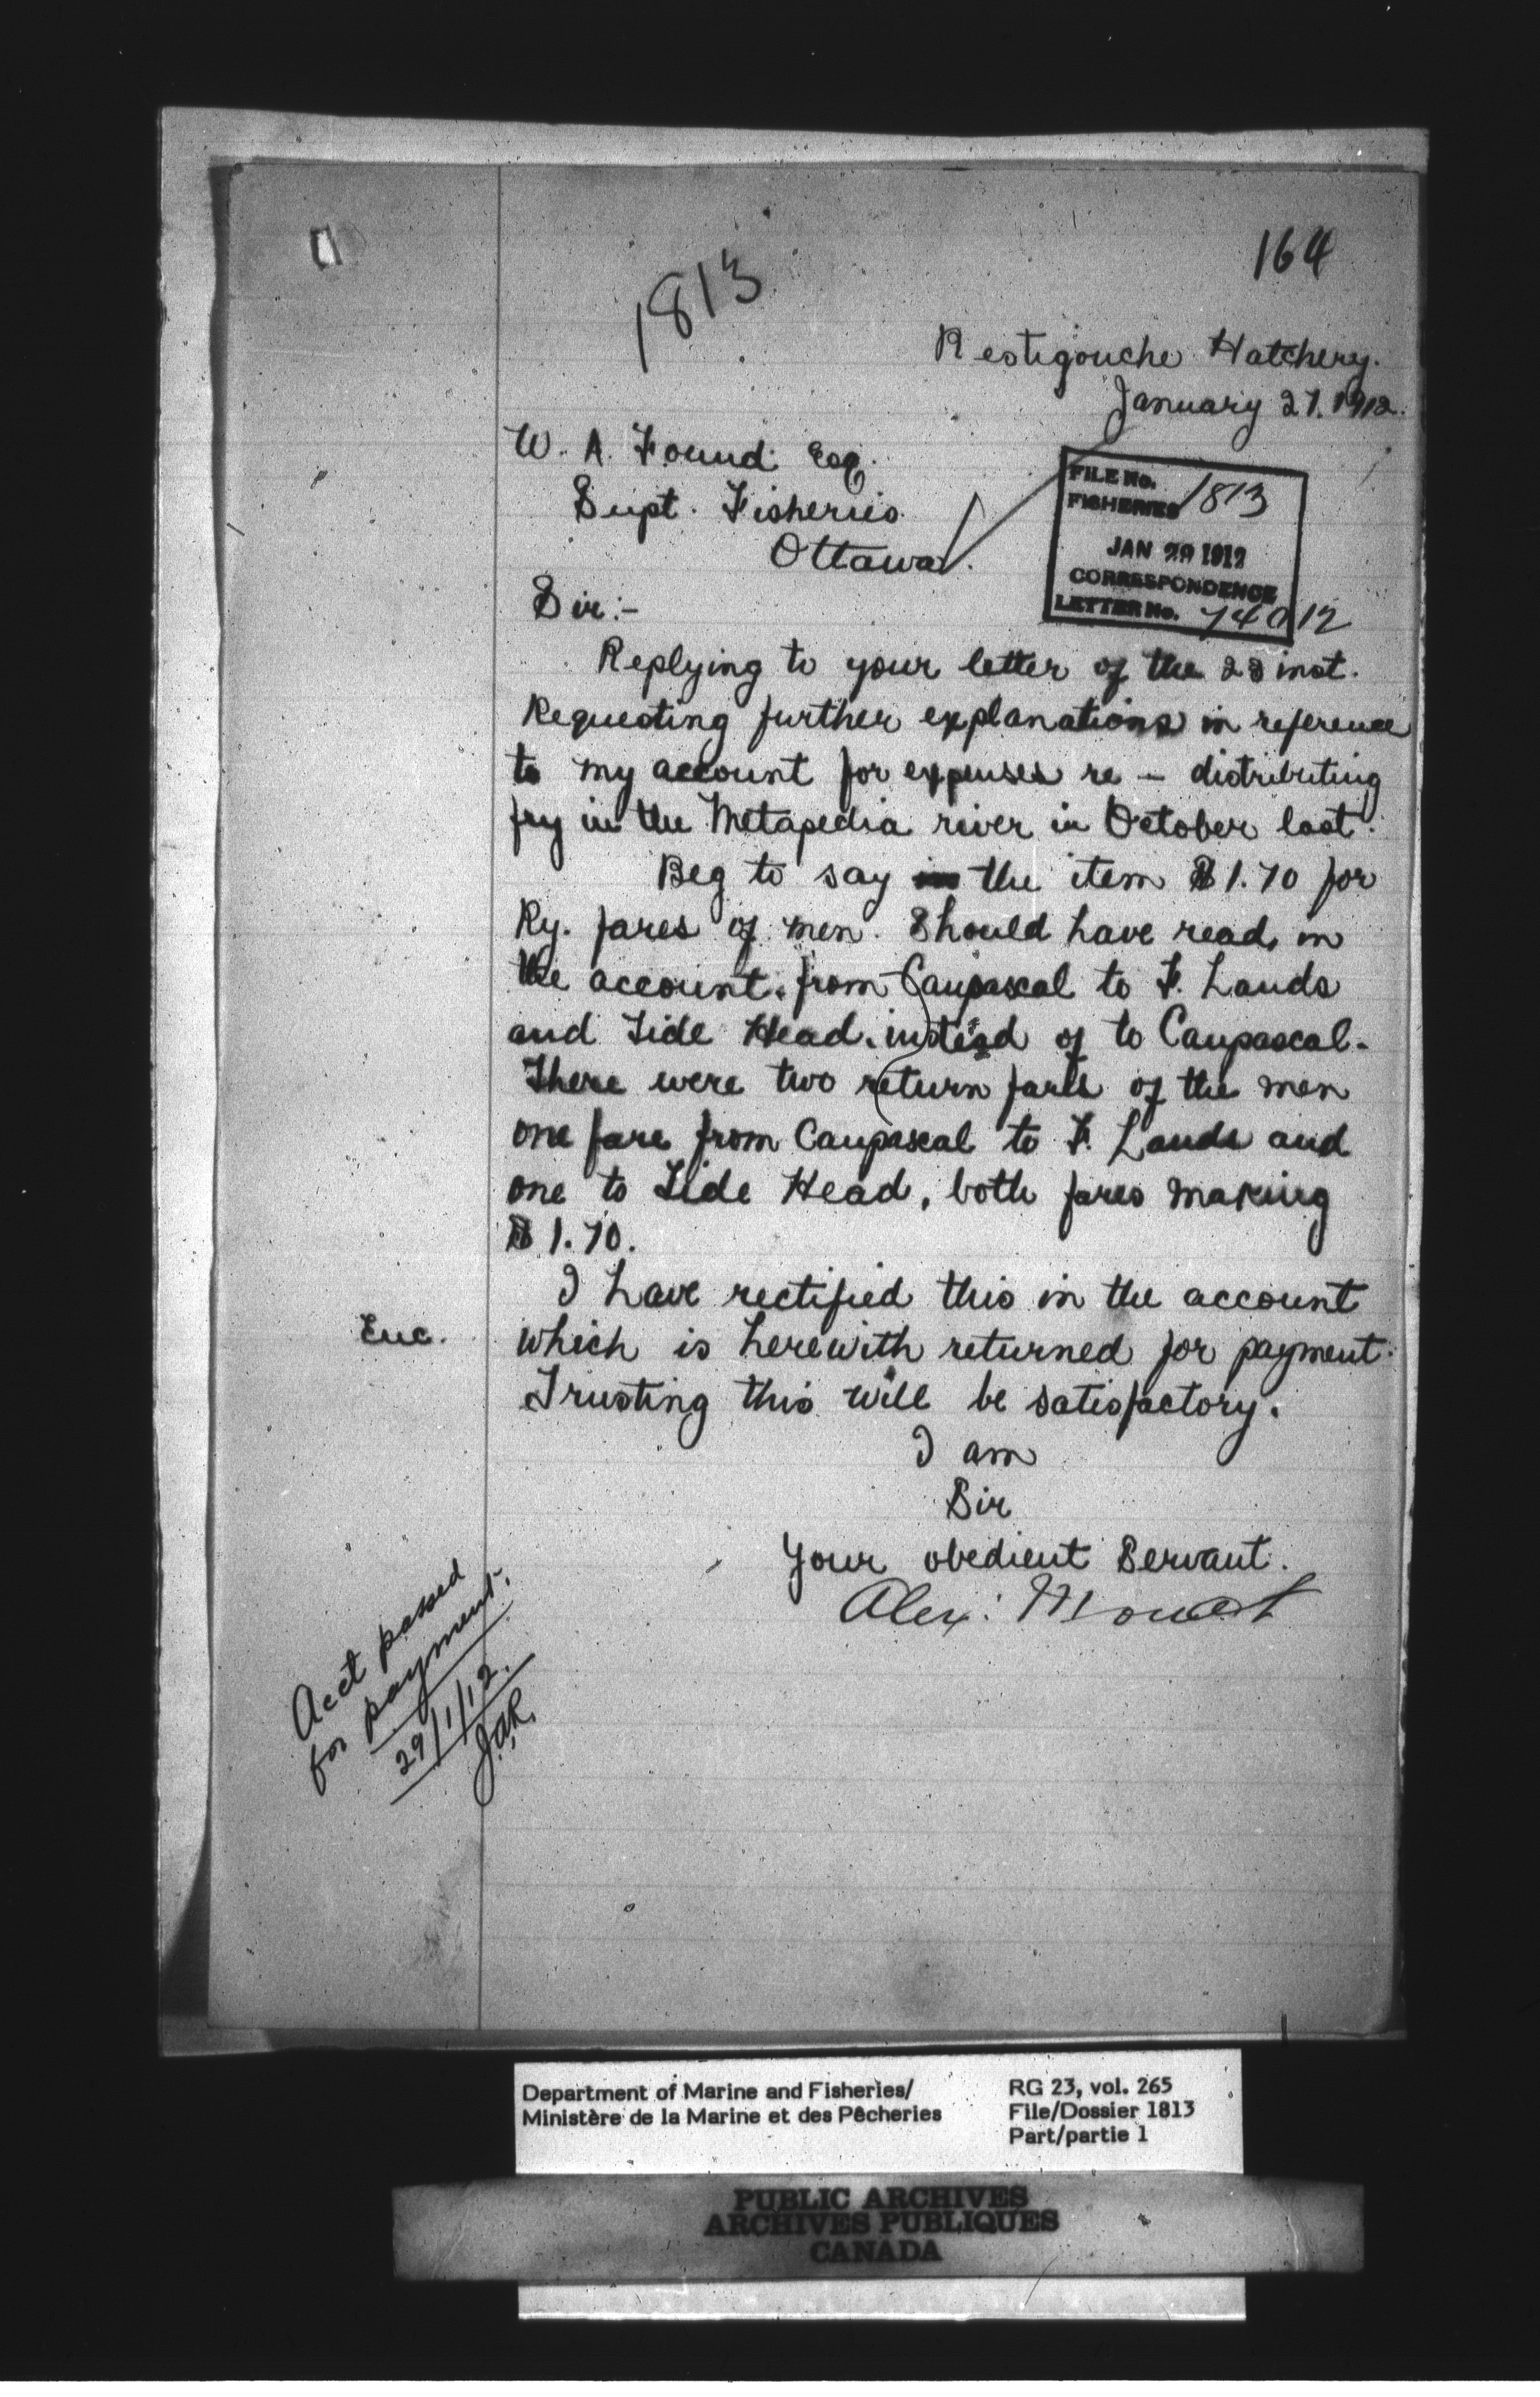 164
1813
Restigouche Hatchery.
January 27. 1912.
W. A. Found Esq.
Supt. Fisheries
Ottawa.
FILE No.
FISHERIES 1813
JAN 29 1912
CORRESPONDENCE
LETTER No. 74012
Sir:-
Replying to your letter of the 23 inst.
Requesting further explanations in reference
to my account for expenses re - distributing
fry in the Metapedia river in October last.
Beg to say the item $1.70 for
Ry. fares of men. Should have read, in
the account. from Caupascal to F. Lands
and Tide Head. instead of to Caupascal.
There were two return fares of the men
one fare from Caupascal to F. Lands and
one to Tide Head, both fares making
$1.70.
I have rectified this in the account
Enc. which is herewith returned for payment.
Trusting this will be satisfactory.
I am
Sir
Your obedient Servant.
Alex: Mowat
Acct passed
for payment.
29/1/12.
Department of Marine and Fisheries/
Ministère de la Marine et des Pêcheries
RG 23, vol. 265
File/Dossier 1813
Part/partie 1
PUBLIC ARCHIVES
ARCHIVES PUBLIQUES
CANADA